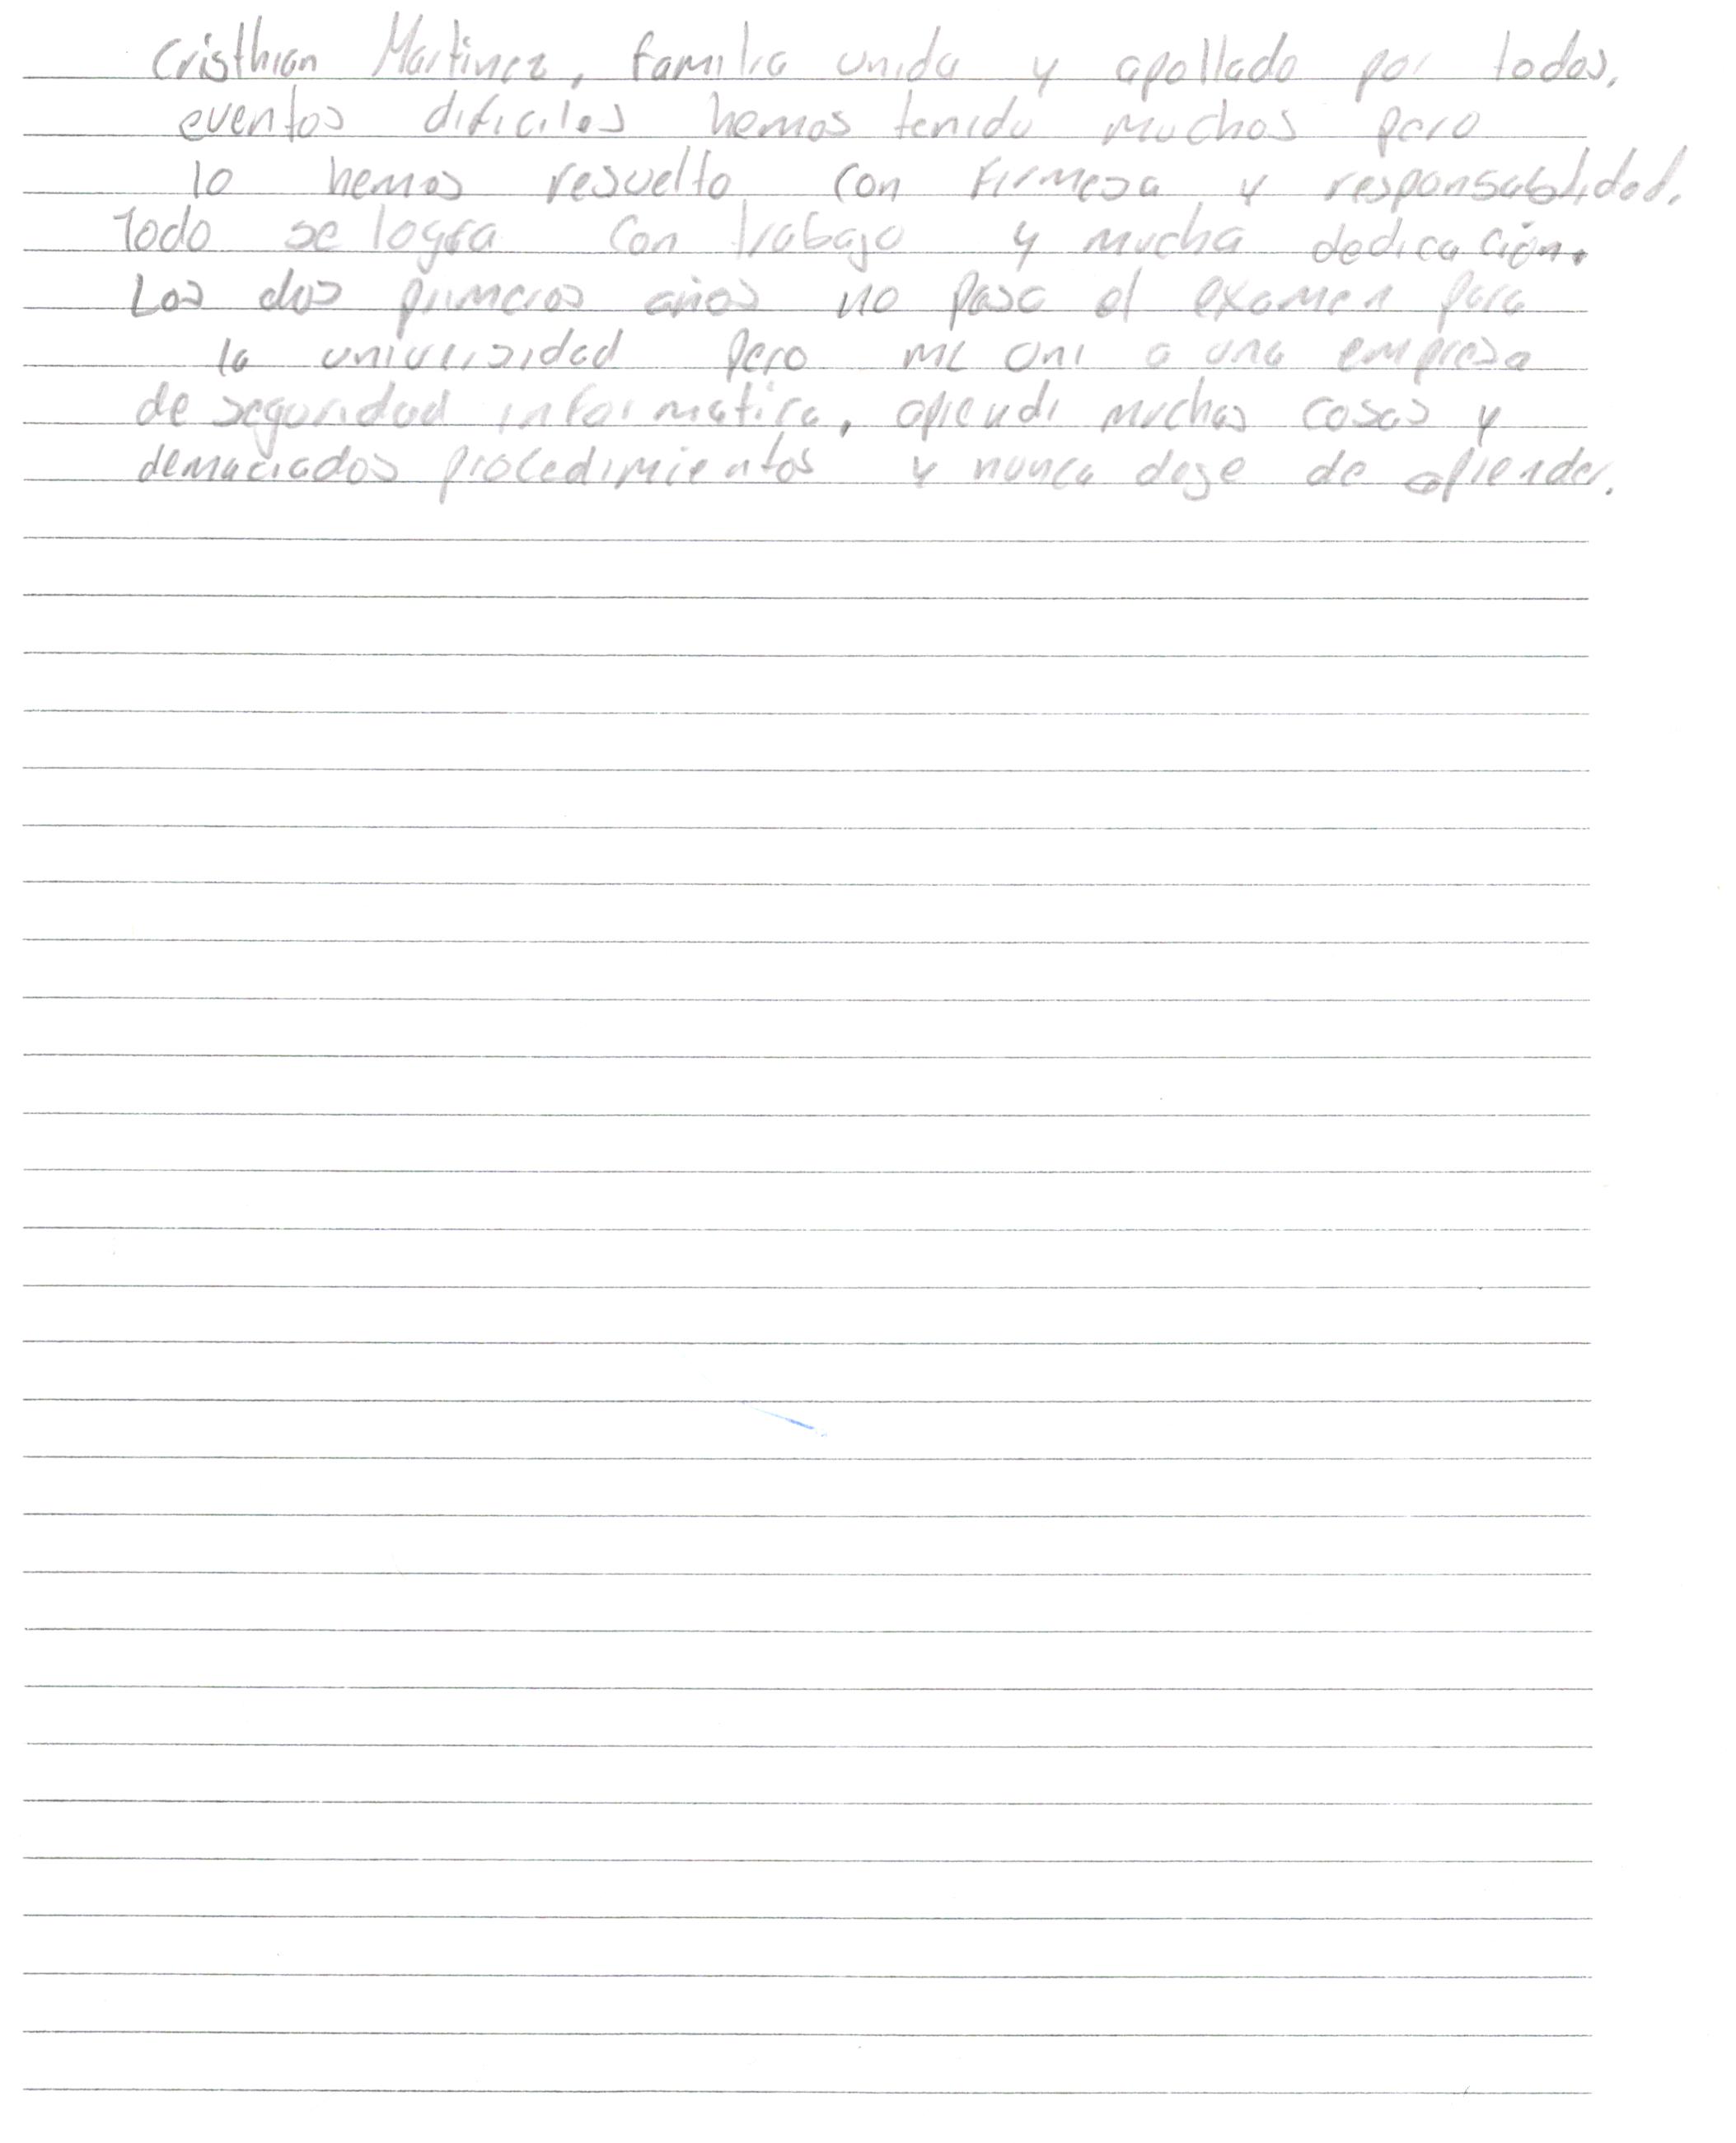 Cristhian Martinez, familia unida y apollado por todos,
eventos dificiles hemos tenido muchos pero
lo hemos resuelto con firmesa y responsabilidad.
Todo se logra con trabajo y mucha dedicación.
Los dos primeros años no pase el examen para
la universidad pero me uni a una empresa
de seguridad informatica, aprendi muchas cosas y
demaciados procedimientos y nunca deje de aprender.